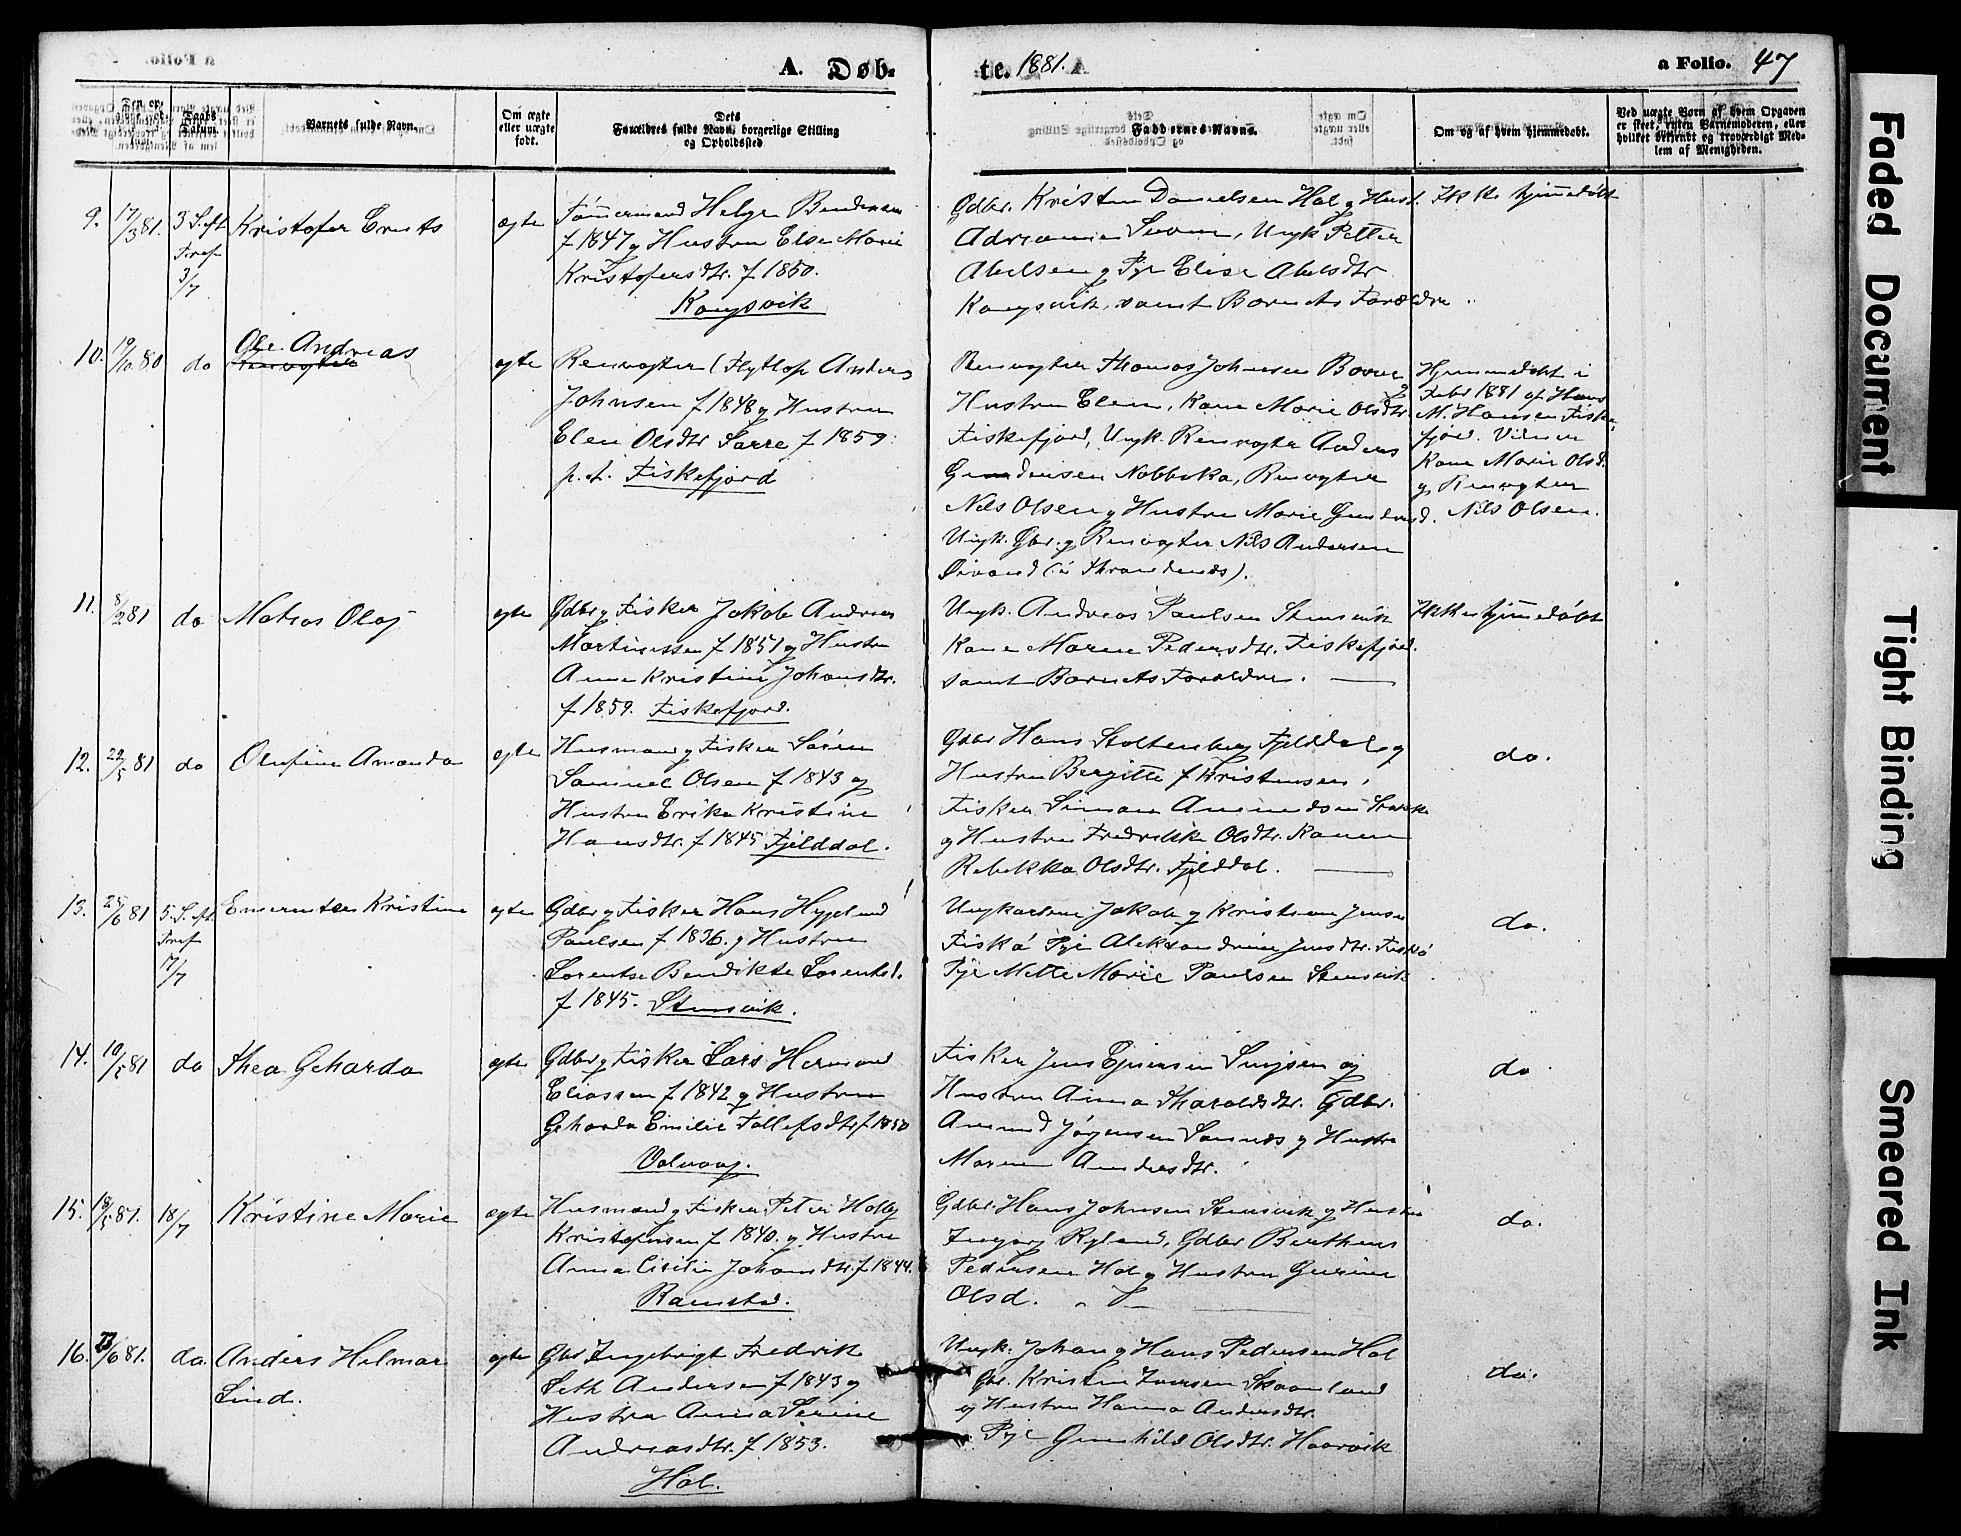 A. Døb-
te. 1881.
a Folio. 47
Daabs Datum.
Barnets fulde Navn.
Om ægte eller uægte født.
Dets Forældres fulde Navn, borgerlige Stilling og Opholdssted
Faddernes Navne.
Om og af hvem hjemmedøbt.
Ved uægte Børn af hvem Opgaven er skeet, enten Barnemoderen, eller hvilket bekjendt og troværdigt Medlem af Menigheden.
9. 17/3 81. 3 S. eft Tref 3/7 Kristofer Ernts ægte
Tømmermand Helge Bendixen
f 1847 og Hustru Else Marie
Kristofersdtr. f 1850.
Kongsvik
Gdbr. Kristen Danielsen Hol og Hust.
Adrianna, Ungk Petter
Abelsen og Pge Elise Abelsdtr
Kongsvik, samt Barnets Forældre
Ikke hjemmedøbt
10. 19/10 80 do Ole Andreas ægte
Renvogter (Flytlap Anders
Johnsen f 1848 og Hustru
Elen Olsdtr Sarre f 1859.
p. t. Fiskefjord
Renvogter Thomas Johnsen
Hustru Elen, Kone Marie Olsdtr
Fiskefjord, Ungk. Renvogter Anders
Nobbuka, Renvogter
Nils Olsen og Hustru Marie
Ungk. Gbr. og Renvogter Nils Andersen
(i Throndenæs).
Hjemmedøbt i
Febr 1881 af Hans
M. Hansen Fiske-
fjord. Vidner
Kone Marie Olsd.
og Renvogter
Nils Olsen.
11. 8/2 81 do Matias Olaf ægte
Gdbr og Fisker Jakob Andreas
Martinussen f 1851 og Hustru
Anne Kristine Johansdtr.
f 1859. Fiskefjord.
Ungk. Andreas Paulsen Stensvik
Kone Maren Pedersdtr. Fiskefjord.
samt Barnets Forældre.
Ikke hjemmedøbt
12. 22/5 81 do Olufine Amanda ægte
Husmand og Fisker Søren
Samuel Olsen f 1843 og
Hustru Erika Kristine
Hansdtr. f 1845 Fjelddal.
Gdbr Hans Stoltenberg Fjelddal og
Hustru Bergitte f Kristensen,
Fisker Simon Amundsen
og Hustru Fredrikke Olsdtr. Konen
Rebekka Olsdtr. Fjelddal.
do.
13. 25/6 81 5. S. eft. Tref 17/7 Kristine ægte
Gdbr og Fisker Hans
Paulsen f 1836. og Hustru
Lorentse Bendikte Lorentsd.
f 1845. Stensvik.
Ungkarlene Jakob og Kristian Jensen
Fiskø Pge Aleksandrine Jensdtr. Fiskø
Pge Mette Marie Paulsen Stensvik
do.
14. 10/5 81 do Thea Geharda ægte
Gdbr og Fisker Lars Hermand
Eliassen f 1842 og Hustru
Geharda Emilie Tollefsdtr f 1850
Valvaag.
Fisker Jens og
Hustru Anna Tharaldsdtr. Gdbr.
Amund Jørgensen Sannæs og Hustru
Maren Andersdtr.
do
15. 19/5 81. 18/7 Kristine Marie ægte
Husmand og Fisker Peter Holby
Kristofersen f 1840. og Hustru
Anna Cicilie Johansdtr. f 1844.
Ramstad.
Gdbr. Hans Johnsen Stensvik og Hustru
Gdbr Bertheus
Pedersen Hol og Hustru Gurine
Olsd.
do.
16. /6 81. do. Anders Helmar ægte
Lind.
Gbr Ingebrigt Fredrik
Seth Andersen f 1843 og
Hustru Anna Serine
Andreasdtr. f 1853.
Hol.
Ungk. Johan og Hans Pedersen Hol
Gbr. Kristen Iversen Skaanland
og Hustru Hanna Andersdtr.
Pge Gunhild Olsdtr. Haarvik
do.
Faded Document
Tight Binding
Smeared Ink